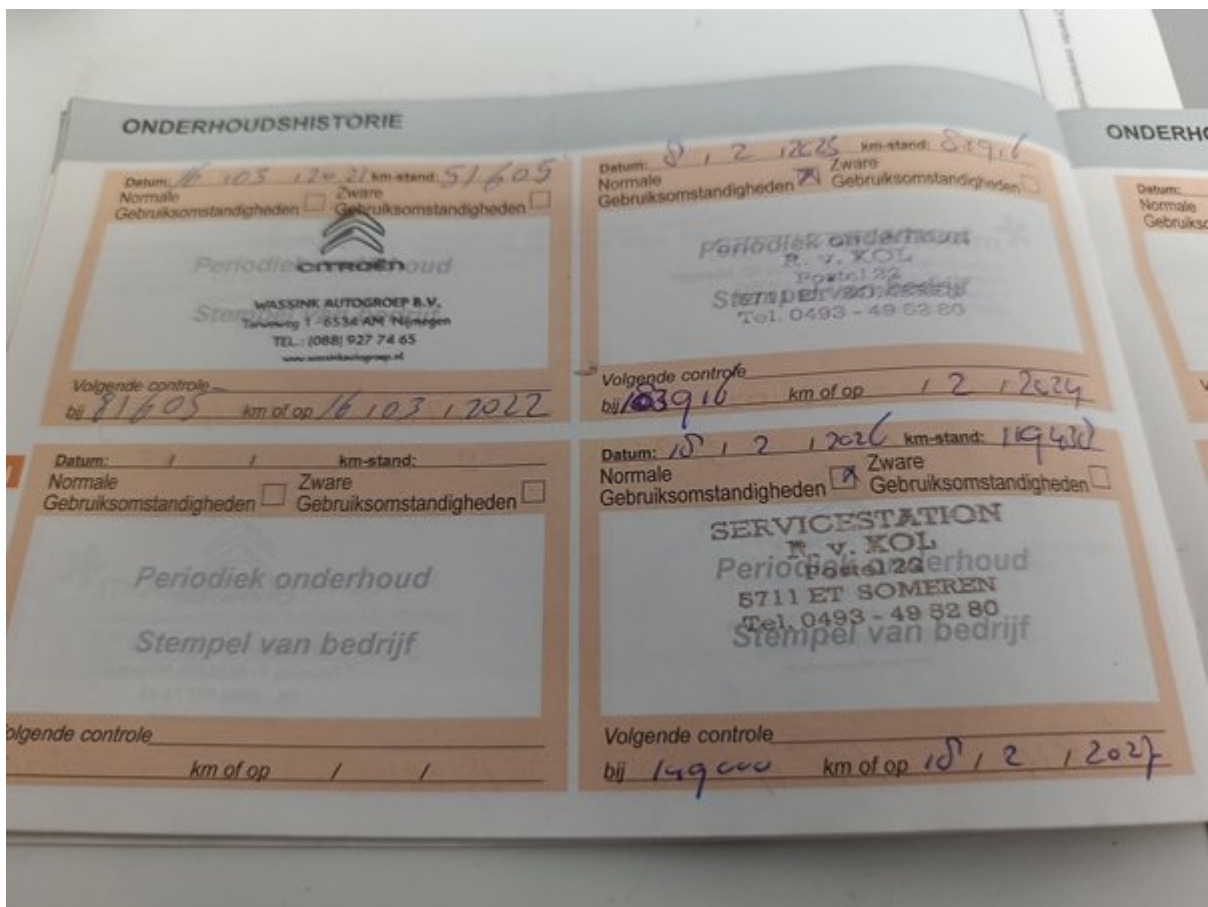 ONDERHOUDSHISTORIE
Datum: 16 / 03 / 2021 km-stand: 51605
Normale Gebruiksomstandigheden
Zware Gebruiksomstandigheden
CITROËN
Periodiek onderhoud
Stempel van bedrijf
WASSINK AUTOGROEP B.V.
Tarweweg 1 - 6534 AM Nijmegen
TEL.: (088) 927 74 65
www.wassinkautogroep.nl
Volgende controle
bij 81605 km of op 16 / 03 / 2022
Datum: / / km-stand:
Normale Gebruiksomstandigheden
Zware Gebruiksomstandigheden
Periodiek onderhoud
Stempel van bedrijf
Volgende controle
km of op / /
Datum: 8 / 2 / km-stand:
Normale Gebruiksomstandigheden
Zware Gebruiksomstandigheden
Periodiek onderhoud
R. v. KOL
Postel 22
Stempel van bedrijf
Tel. 0493 - 49 52 80
Volgende controle
bij km of op / 2 / 2024
Datum: 18 / 2 / 2026 km-stand:
Normale Gebruiksomstandigheden
Zware Gebruiksomstandigheden
SERVICESTATION
R. v. KOL
Periodiek onderhoud
Postel 22
5711 ET SOMEREN
Tel. 0493 - 49 52 80
Stempel van bedrijf
Volgende controle
bij 149000 km of op 18 / 2 / 2027
Datum:
Normale